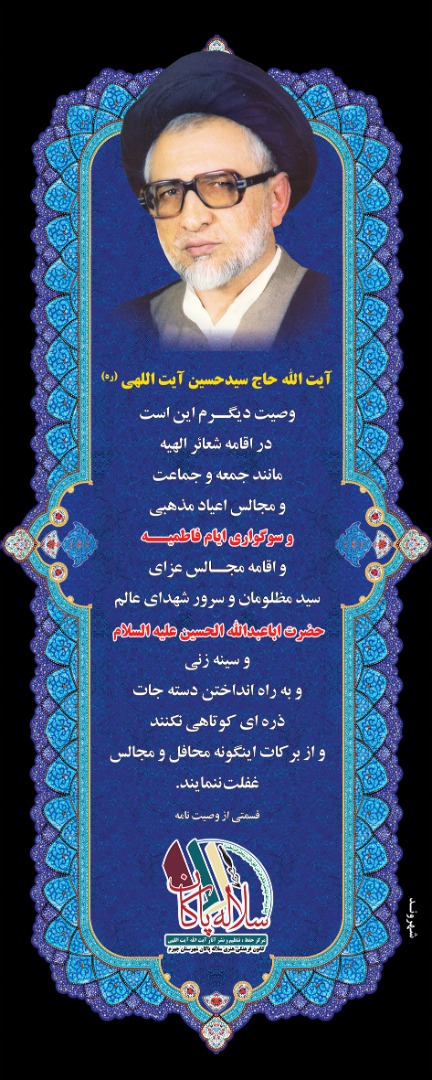 آیت الله حاج سیدحسین آیت اللهی (ره)
وصیت دیگرم این است
در اقامه شعائر الهیه
مانند جمعه و جماعت
و مجالس اعیاد مذهبی
و سوگواری ایام فاطمیه
و اقامه مجالس عزای
سید مظلومان و سرور شهدای عالم
حضرت اباعبدالله الحسین علیه السلام
و سینه زنی
و به راه انداختن دسته جات
ذره ای کوتاهی نکنند
و از برکات اینگونه محافل و مجالس
غفلت ننمایند.
قسمتی از وصیت نامه
سلاله پاکان
مرکز حفظ ، تنظیم و نشر آثار آیت الله آیت اللهی
کانون فرهنگی هنری سلاله پاکان شهرستان جهرم
شهروند